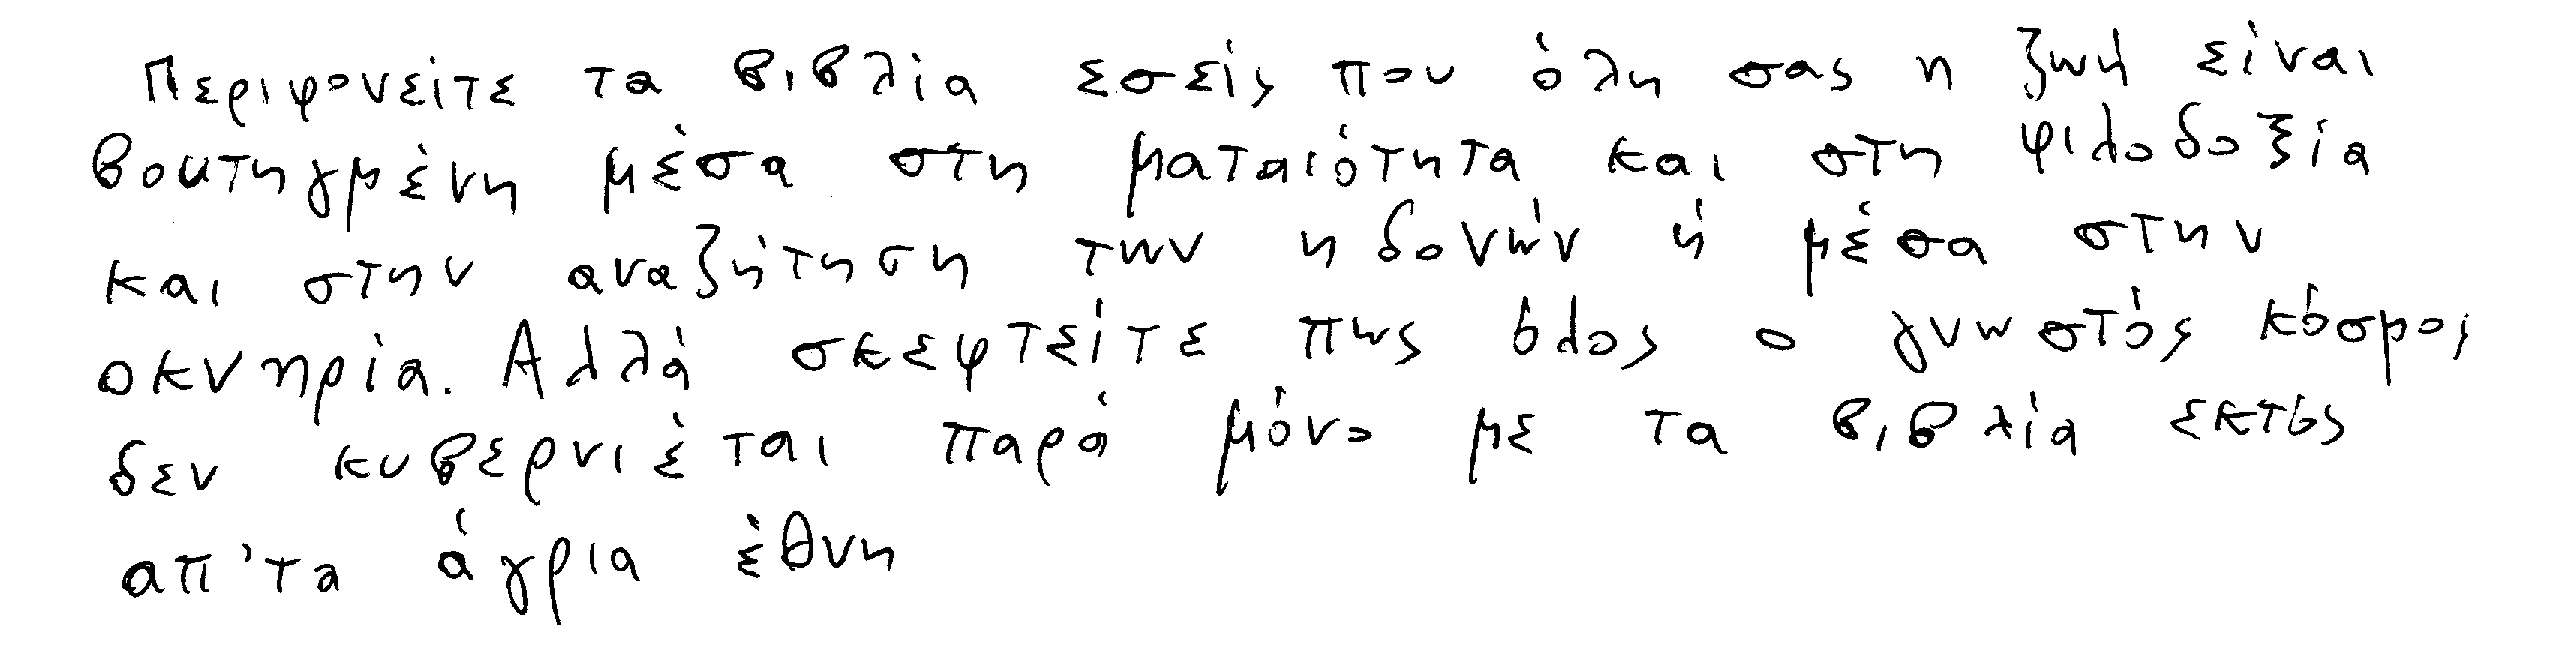 Περιφονείτε τα βιβλία εσείς που όλη σας η ζωή είναι
βουτηγμένη μέσα στη ματαιότητα και στη φιλοδοξία
και στην αναζήτηση των ηδονών ή μέσα στην
οκνηρία. Αλλά σκεφτείτε πως όλος ο γνωστός κόσμος
δεν κυβερνιέται παρά μόνο με τα βιβλία εκτός
απ'τα άγρια έθνη